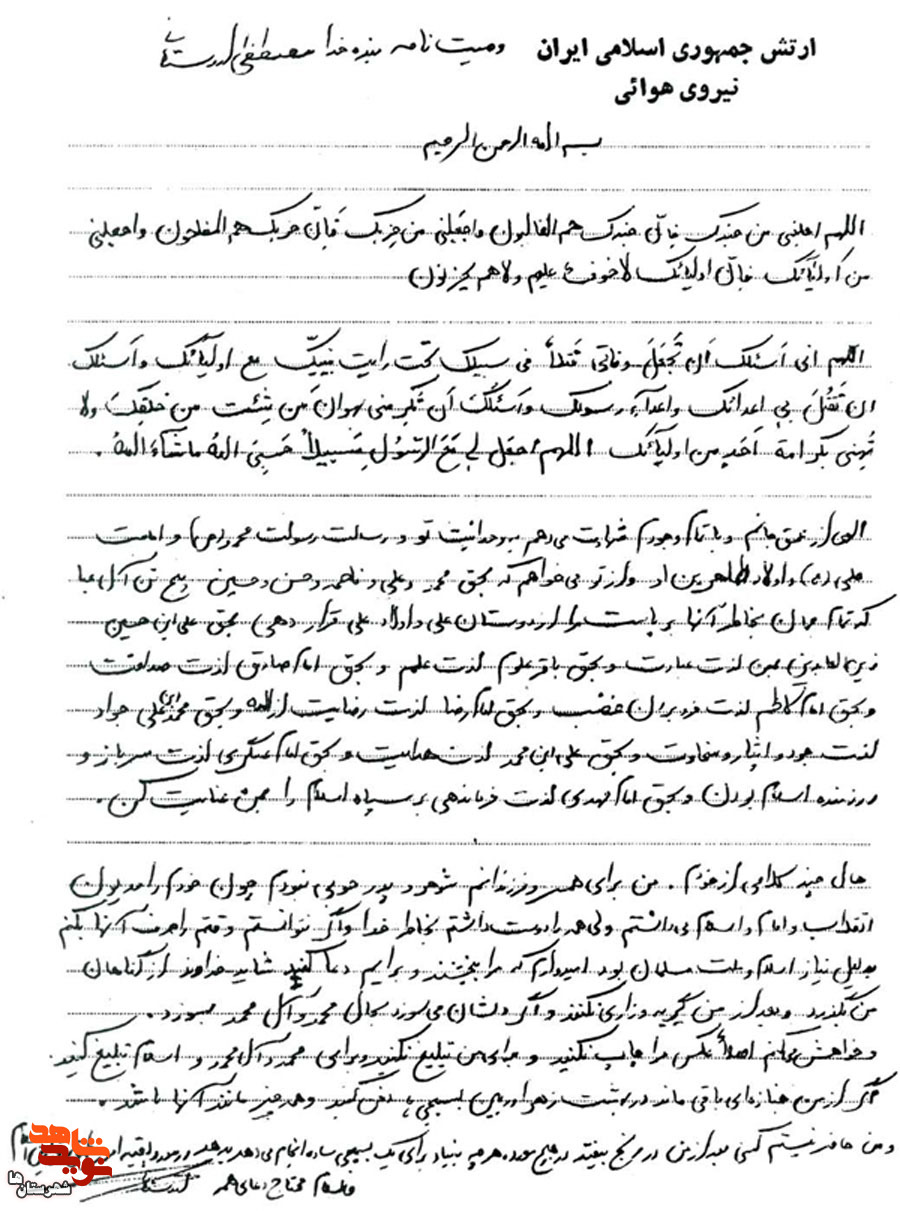 ارتش جمهوری اسلامی ایران
نیروی هوائی
وصیت نامه بنده خدا مصطفی اردستانی
بسم الله الرحمن الرحیم
اللهم اجعلنی من جندک فان جندک هم الغالبون واجعلنی من حزبک فان حزبک هم المفلحون واجعلنی
من اولیائک فان اولیائک لاخوف علیهم ولاهم یحزنون
اللهم انی اسئلک ان تجعل وفاتی قتلاً فی سبیلک تحت رایت نبیک مع اولیائک واسئلک
ان تقتل بی اعدائک واعداء رسولک واسئلک ان تکرمنی بهوان من شئت من خلقک ولا
تهنی بکرامة احد من اولیائک اللهم اجعل لی مع الرسول سبیلاً حسبی الله ماشاء الله .
الهی از عمق جانم و با تمام وجودم شهادت می‌دهم به وحدانیت تو و رسالت رسولت محمد (ص) و امامت
علی (ع) و اولاد طاهرین او و از تو می‌خواهم که بحق محمد و علی و فاطمه و حسن و حسین پنج تن آل عبا
که تمام جهان بخاطر آنها برپاست مرا از دوستان علی و اولاد علی قرار دهی بحق علی ابن حسین
زین العابدین بمن لذت عبادت و بحق باقر علوم لذت علم و بحق امام صادق لذت صداقت
و بحق امام کاظم لذت فرو بردن غضب و بحق امام رضا لذت رضایت از الله و بحق محمد ابن علی جواد
لذت جود و ایثار و سخاوت و بحق علی ابن محمد لذت هدایت و بحق امام عسگری لذت سرباز و
رزمنده اسلام بودن و بحق امام مهدی لذت فرماندهی بر سپاه اسلام را بمن عنایت کن .
حال چند کلامی از خودم . من برای همسر و فرزندانم شوهر و پدر خوبی نبودم چون خودم را مدیون
انقلاب و امام و اسلام می‌دانستم ولی همه را دوست داشتم بخاطر خدا و اگر نتوانستم وقتم را صرف آنها بکنم
بدلیل نیاز اسلام و ملت مسلمان بود امیدوارم که مرا ببخشند و برایم دعا کنند شاید خداوند از گناهان
من بگذرد و بعد از من گریه و زاری نکنند و اگر دلشان می‌سوزد بحال محمد و آل محمد بسوزد .
و خواهش می‌کنم اصلاً عکس مرا چاپ نکنید و برای من تبلیغ نکنید و برای محمد و آل محمد و اسلام تبلیغ کنید .
اگر از من جنازه‌ای باقی ماند در بهشت زهرا و در بین بسیجی‌ها دفن کنید و همه چیز مانند آنها باشد .
و من حاضر نیستم کسی بعد از من در رنج بیفتد هرچه بنیاد برای یک بسیجی ساده انجام می‌دهد
والسلام محتاج دعای همه
شاهد
نوید
شهرستان‌ها